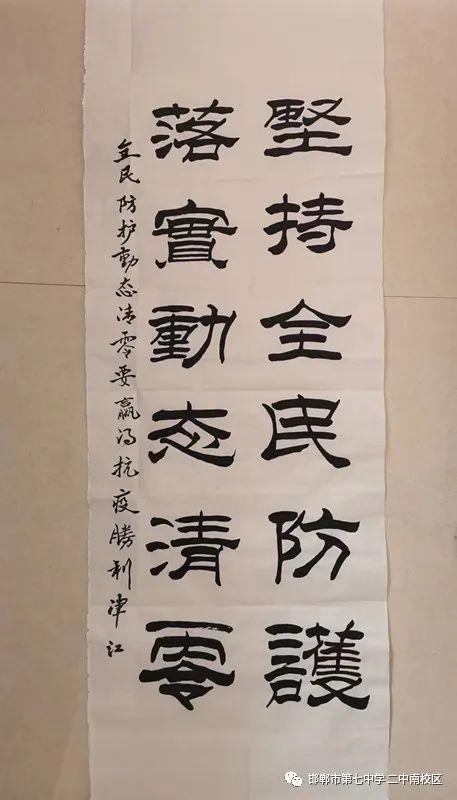 堅持全民防護
落實動态清零
全民防护動态清零要贏得抗疫勝利津江
邯郸市第七中学二中南校区